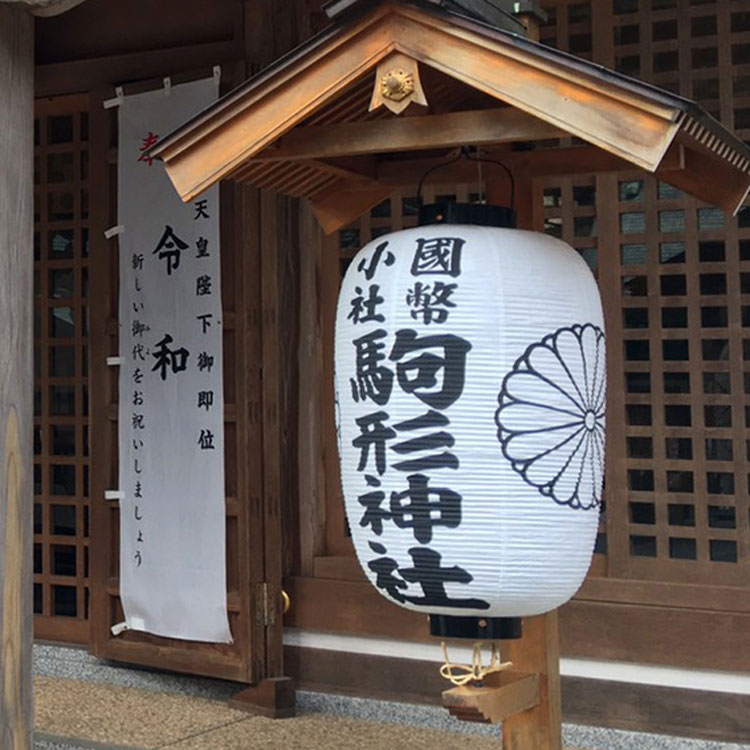 奉
天皇陛下御即位
令和
新しい御代をお祝いしましょう
みよ
國幣
小社
駒形神社